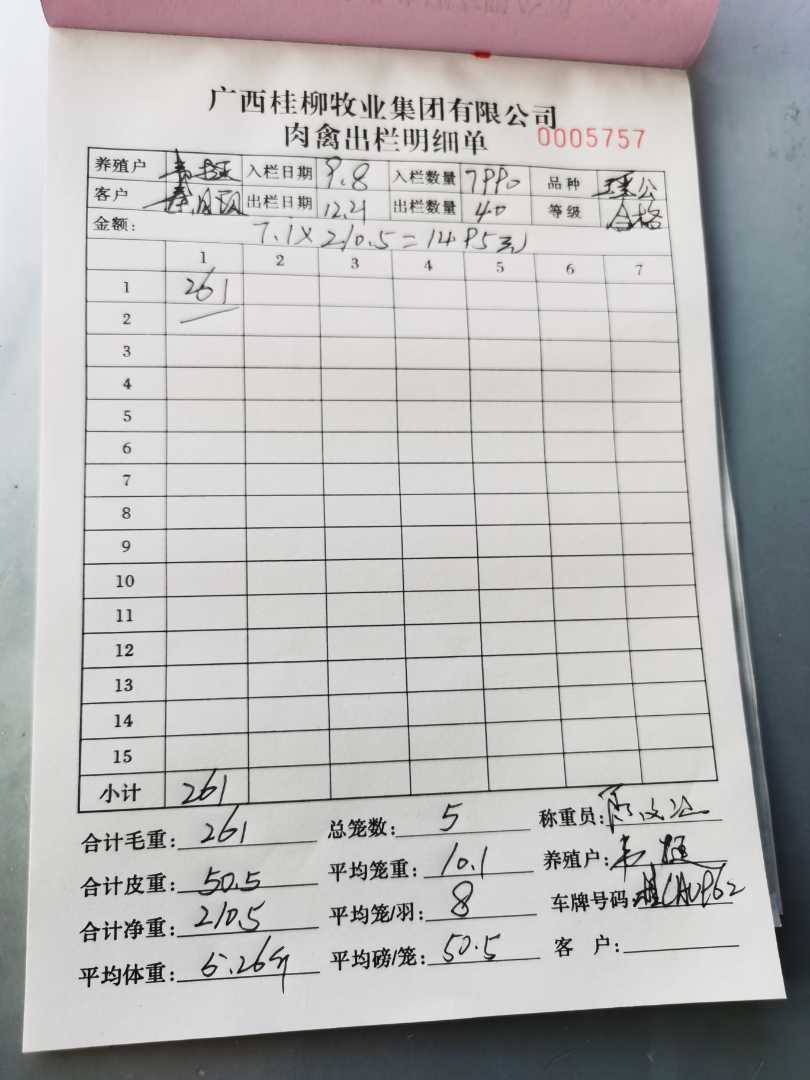 广西桂柳牧业集团有限公司
肉禽出栏明细单 0005757
养殖户 入栏日期 9.8 入栏数量 7990 品种 瑶公
客户 出栏日期 12.21 出栏数量 40 等级 合格
金额: 7.1×210.5=1495元
1 2 3 4 5 6 7
1 261
2
3
4
5
6
7
8
9
10
11
12
13
14
15
小计 261
合计毛重: 261 总笼数: 5 称重员:
合计皮重: 50.5 平均笼重: 10.1 养殖户: 韦
合计净重: 210.5 平均笼/羽: 8 车牌号码: 桂CA0962
平均体重: 5.26斤 平均磅/笼: 50.5 客 户: